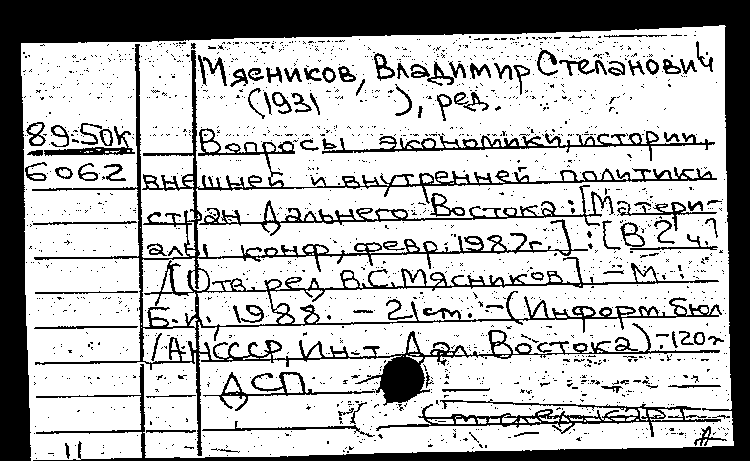 Мясников, Владимир Степанович
(1931 ), ред.
89-50К
6062
Вопросы экономики, истории,
внешней и внутренней политики
стран Дальнего Востока: [Матери-
алы конф., февр. 1987г.] : [В 2 ч.]
/ [Отв. ред. В.С. Мясников]. - М. :
Б.и., 1988. - 21см. - (Информ. бюл
/ АН СССР, Ин-т Дал. Востока). - 120х
ДСП.
См. след. карт.
11